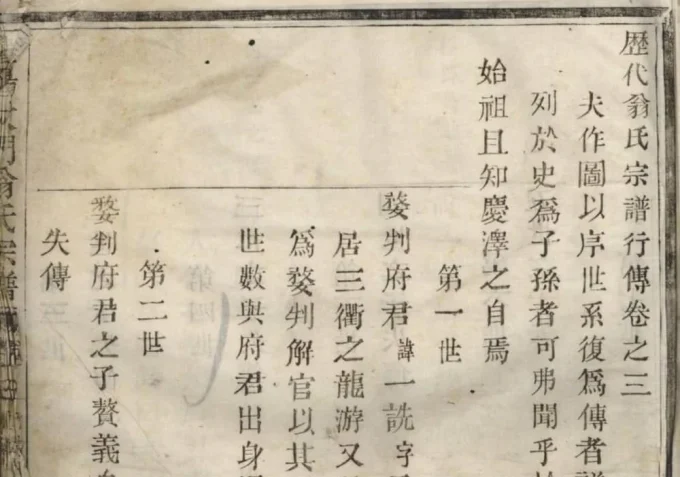 歷代翁氏宗譜行傳卷之三
夫作圖以序世系復爲傳者詳
列於史爲子孫者可弗聞乎
始祖且知慶澤之自焉
第一世
婺判府君諱一詵字
居三衢之龍游又
爲婺判解官以其
世數與府君出身
第二世
婺判府君之子贅義
失傳
門翁氏宗譜